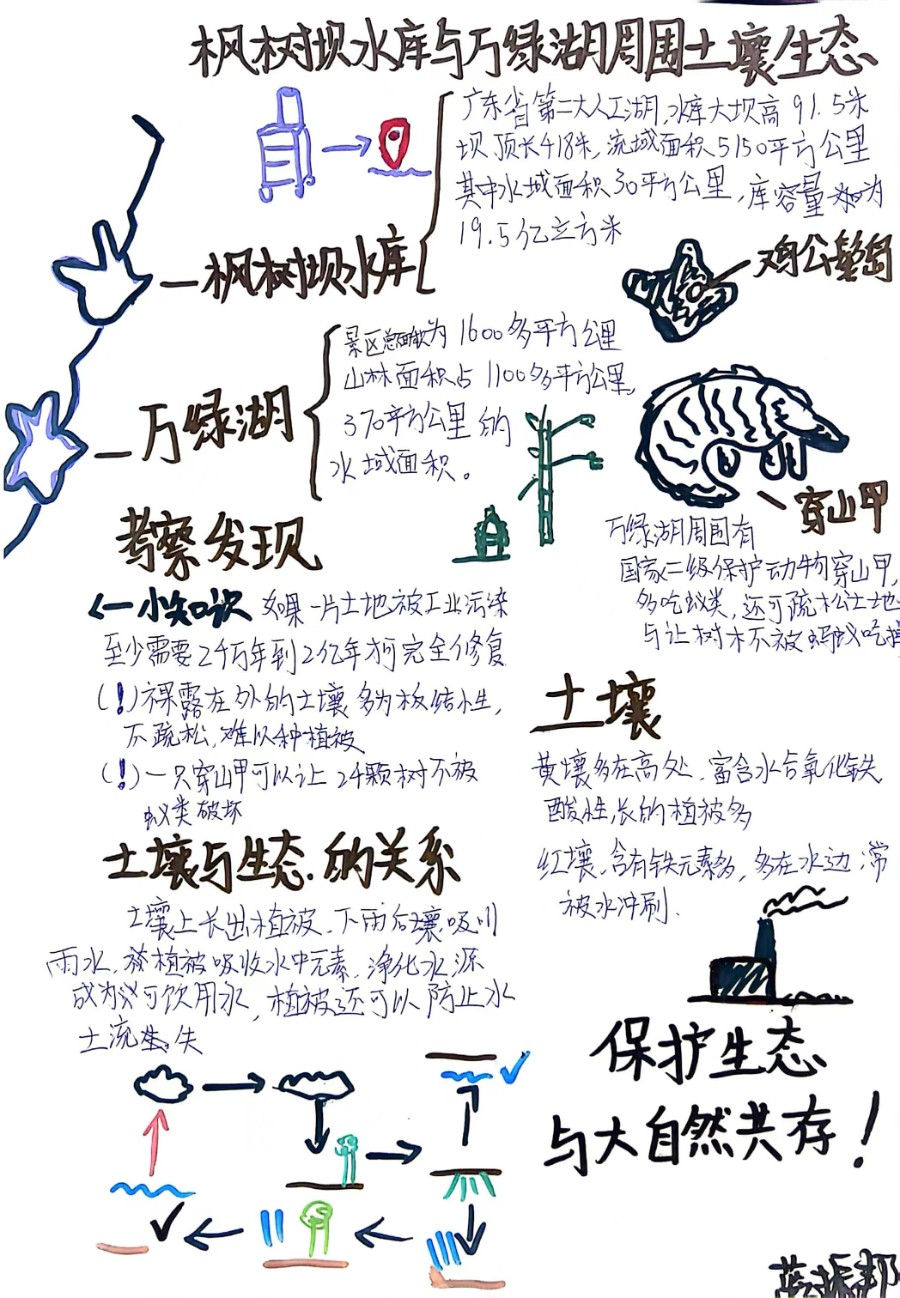 枫树坝水库与万绿湖周围土壤生态
广东省第二大人工湖,水库大坝高91.5米
坝顶长418米,流域面积5150平方公里
其中水域面积30平方公里,库容量为
19.5亿立方米
一枫树坝水库
鸡公髻岛
景区总面积为1600多平方公里
山林面积占1100多平方公里,
370平方公里的
水域面积。
一万绿湖
穿山甲
万绿湖周围有
国家二级保护动物穿山甲,
多吃蚁类,还可疏松土地
与让树木不被蚂蚁吃掉
考察发现
←小知识 如果一片土地被工业污染
至少需要2千万年到2亿年才可完全修复
(!)裸露在外的土壤多为板结性,
不疏松,难以种植被
(!)一只穿山甲可以让24颗树不被
蚁类破坏
土壤
黄壤多在高处,富含水合氧化铁
酸性长的植被多
红壤,含有铁元素多,多在水边,常
被水冲刷.
土壤与生态的关系
土壤上长出植被,下雨后壤吸收
雨水,植被吸收水中元素,净化水源
成为可饮用水,植被还可以防止水
土流失
保护生态
与大自然共存!
振邦